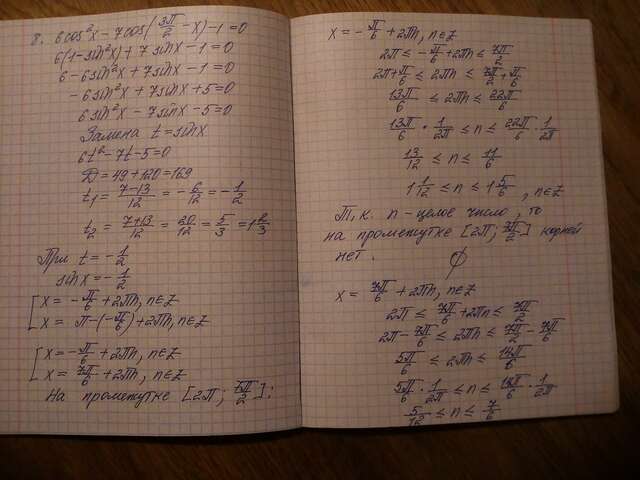 8. 6cos²x - 7cos(3π/2 - x) - 1 = 0
6(1 - sin²x) + 7 sinx - 1 = 0
6 - 6sin²x + 7sinx - 1 = 0
-6sin²x + 7sinx + 5 = 0
6sin²x - 7sinx - 5 = 0
Замена t = sinx
6t² - 7t - 5 = 0
D = 49 + 120 = 169
t₁ = (7-13)/12 = -6/12 = -1/2
t₂ = (7+13)/12 = 20/12 = 5/3 = 1 2/3
При t = -1/2
sinx = -1/2
[ x = -π/6 + 2πn, n∈Z
x = π - (-π/6) + 2πn, n∈Z
[ x = -π/6 + 2πn, n∈Z
x = 7π/6 + 2πn, n∈Z
На промежутке [2π; 7π/2]:
x = -π/6 + 2πn, n∈Z
2π ≤ -π/6 + 2πn ≤ 7π/2
2π + π/6 ≤ 2πn ≤ 7π/2 + π/6
13π/6 ≤ 2πn ≤ 22π/6
13π/6 · 1/2π ≤ n ≤ 22π/6 · 1/2π
13/12 ≤ n ≤ 11/6
1 1/12 ≤ n ≤ 1 5/6, n∈Z
Т.к. n - целое число, то
на промежутке [2π; 7π/2] корней
нет. ∅
x = 7π/6 + 2πn, n∈Z
2π ≤ 7π/6 + 2πn ≤ 7π/2
2π - 7π/6 ≤ 2πn ≤ 7π/2 - 7π/6
5π/6 ≤ 2πn ≤ 14π/6
5π/6 · 1/2π ≤ n ≤ 14π/6 · 1/2π
5/12 ≤ n ≤ 7/6